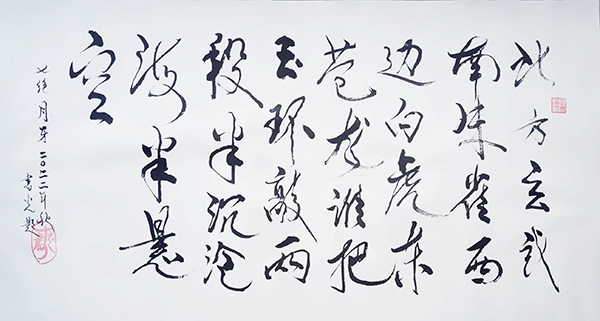 北方玄武
南朱雀西
边白虎东
苍龙谁把
玉环敲两
段半沉沧
海半悬
空
七绝 月牙 二〇二二年秋
書光题